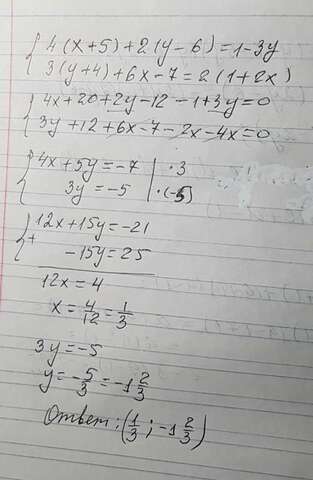 4(x+5)+2(y-6)=1-3y
3(y+4)+6x-7=2(1+2x)
4x+20+2y-12-1+3y=0
3y+12+6x-7-2x-4x=0
4x+5y=-7 | ·3
3y=-5 | ·(-5)
12x+15y=-21
+ -15y=25
12x=4
x=4/12=1/3
3y=-5
y=-5/3=-1 2/3
Ответ: (1/3; -1 2/3)